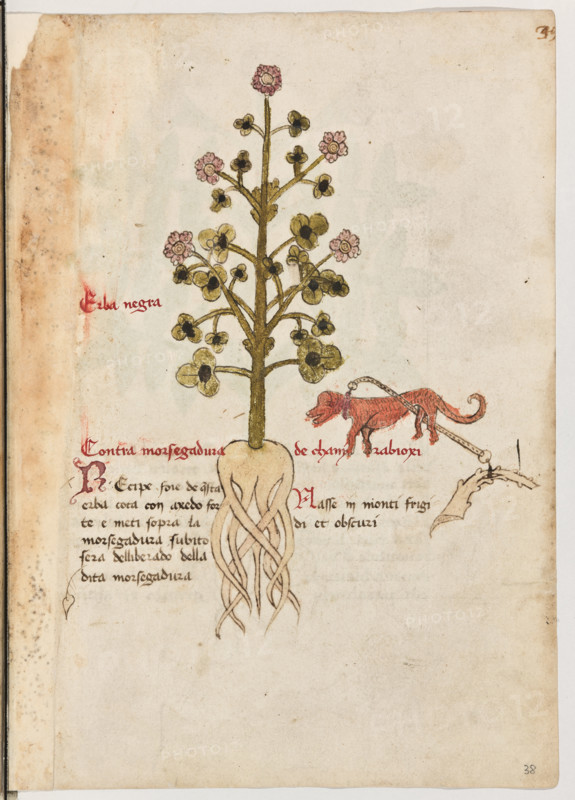 39
Erba negra
Contra morsegadura de chani rabioxi
Recipe foie de q̄sta
erba cota con axedo for
te e meti sopra la
morsegadura subito
sera delliberado della
dita morsegadura
Nasse in monti frigi
di et obscuri
38
PHOTO12